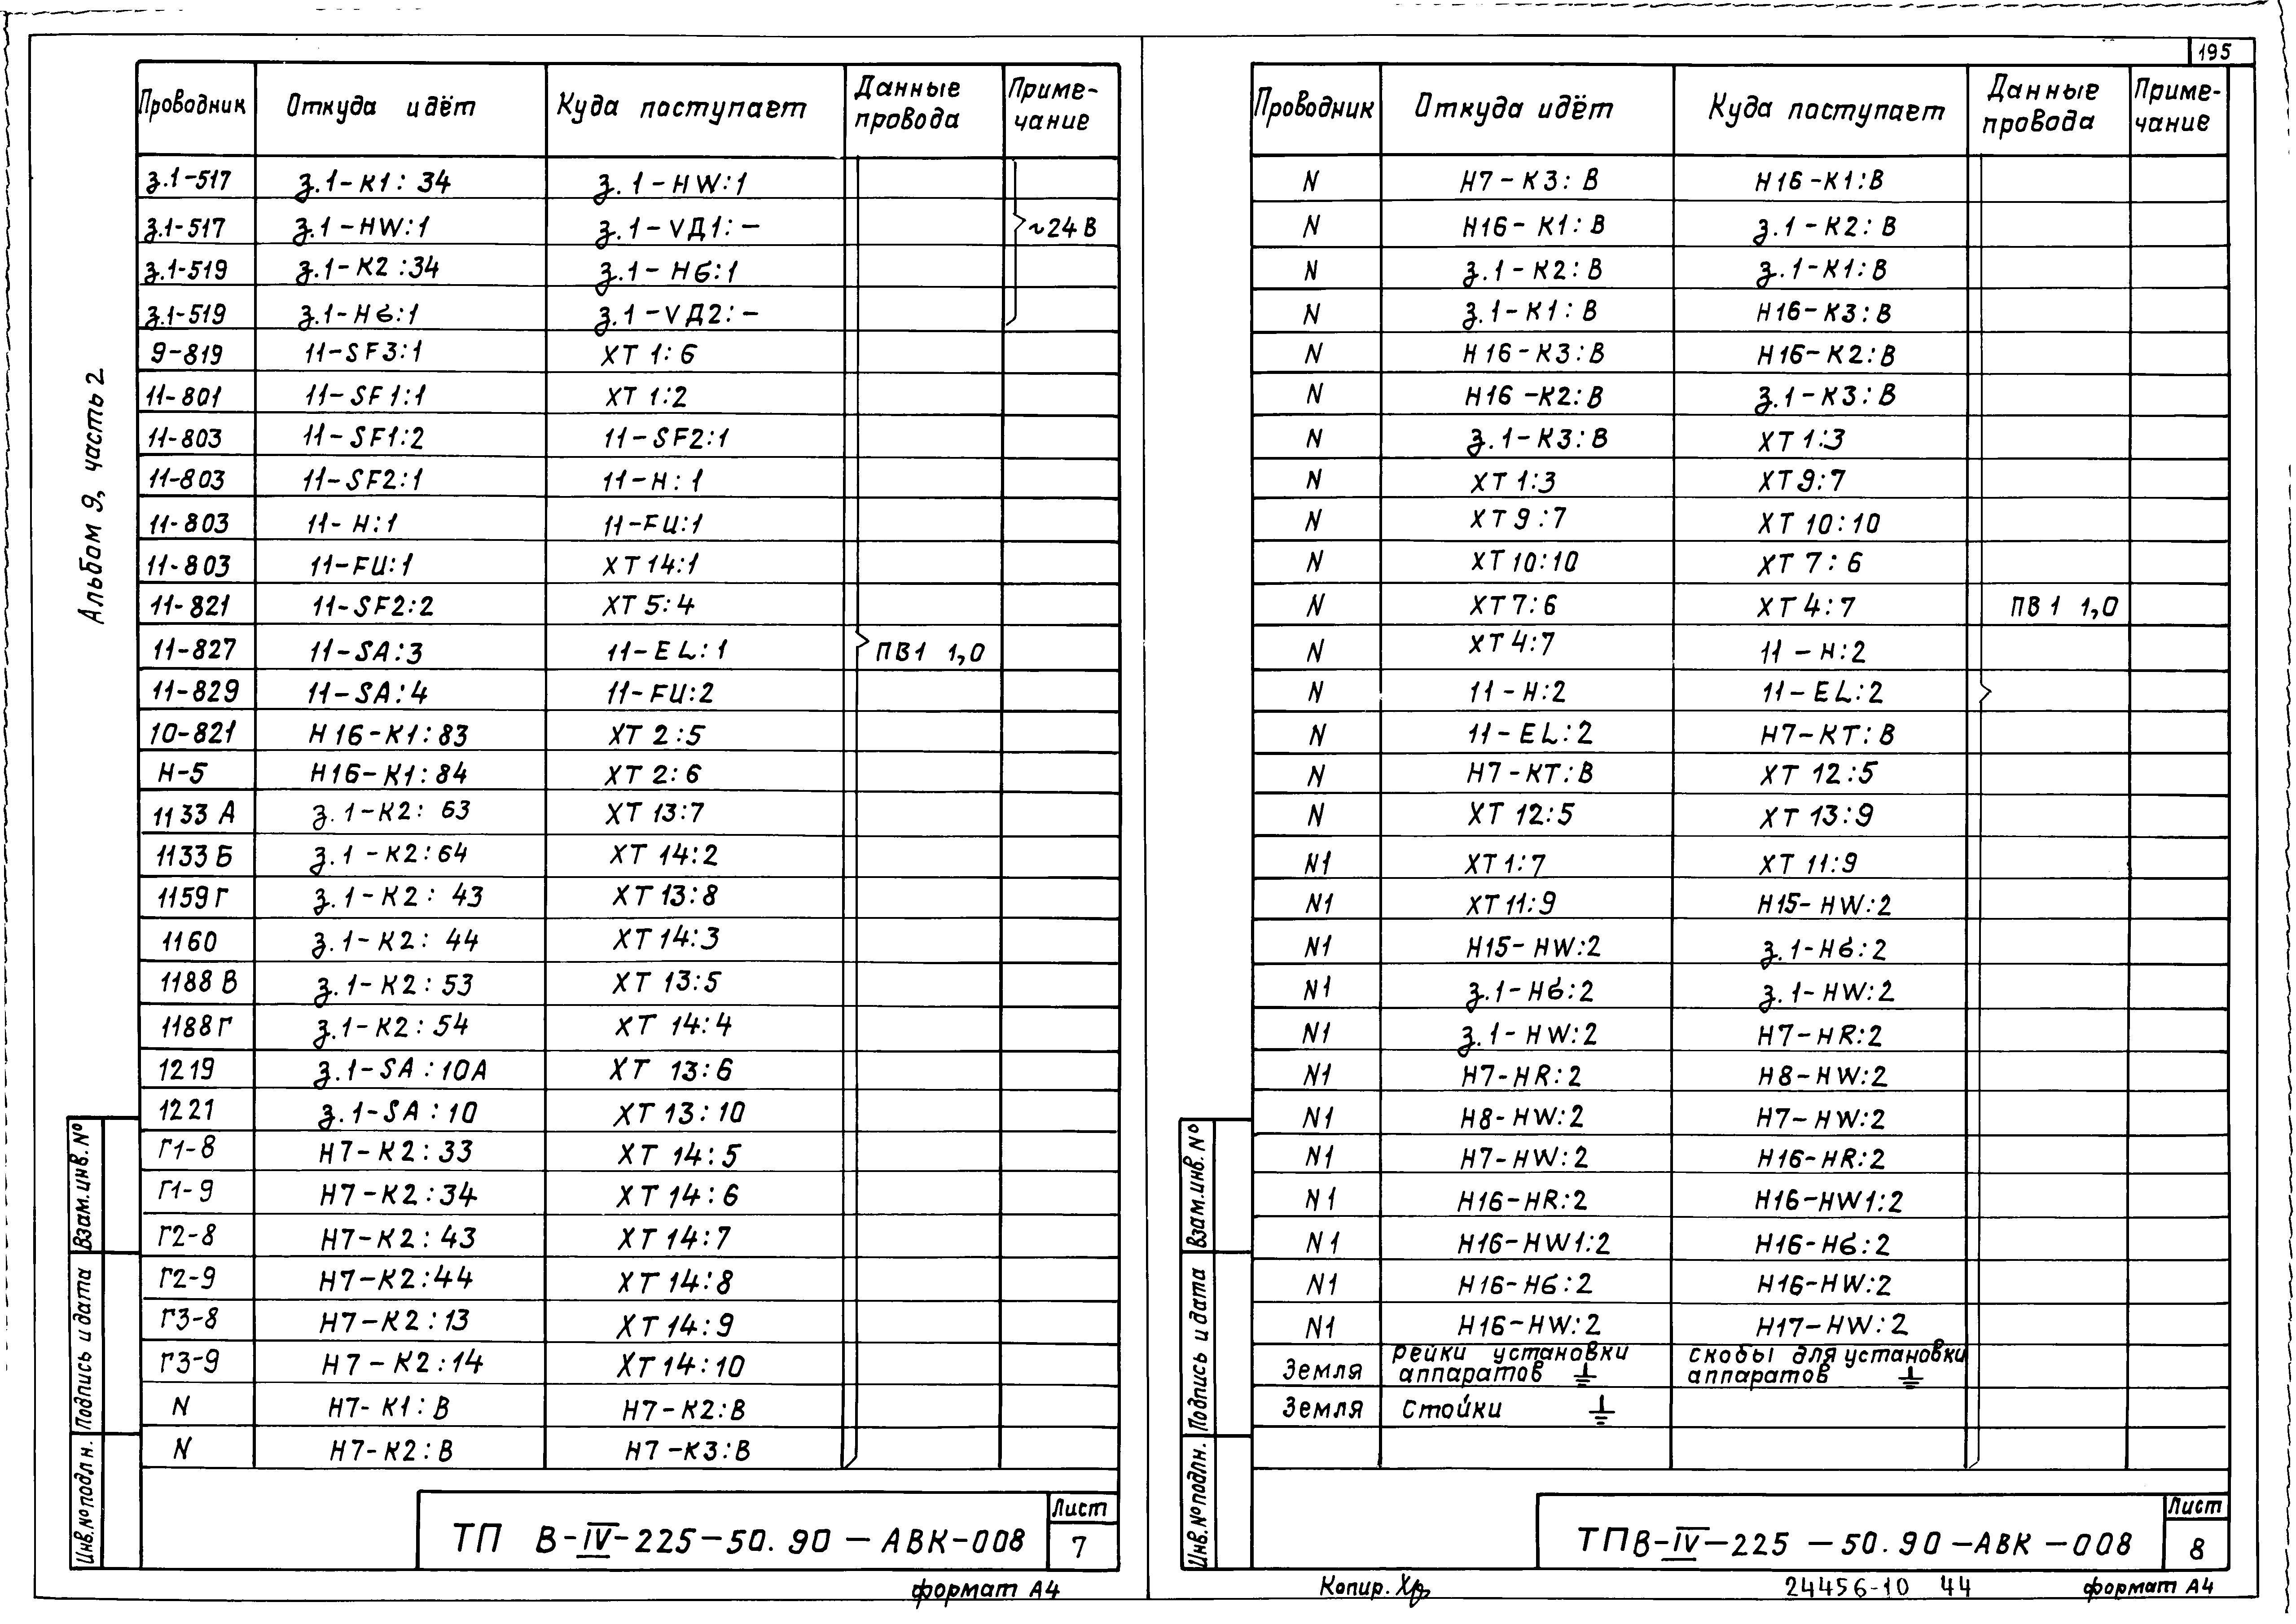 195
Альбом 9, часть 2
Проводник Откуда идёт Куда поступает Данные провода Приме-чание
з.1-517 з.1-К1:34 з.1-HW:1
з.1-517 з.1-HW:1 з.1-VД1:- ~24В
з.1-519 з.1-К2:34 з.1-НG:1
з.1-519 з.1-НG:1 з.1-VД2:-
9-819 11-SF3:1 ХТ1:6
11-801 11-SF1:1 ХТ1:2
11-803 11-SF1:2 11-SF2:1
11-803 11-SF2:1 11-Н:1
11-803 11-Н:1 11-FU:1
11-803 11-FU:1 ХТ14:1
11-821 11-SF2:2 ХТ5:4
11-827 11-SA:3 11-EL:1 ПВ1 1,0
11-829 11-SA:4 11-FU:2
10-821 Н16-К1:83 ХТ2:5
Н-5 Н16-К1:84 ХТ2:6
1133А з.1-К2:63 ХТ13:7
1133Б з.1-К2:64 ХТ14:2
1159Г з.1-К2:43 ХТ13:8
1160 з.1-К2:44 ХТ14:3
1188В з.1-К2:53 ХТ13:5
1188Г з.1-К2:54 ХТ14:4
1219 з.1-SA:10А ХТ13:6
1221 з.1-SA:10 ХТ13:10
Г1-8 Н7-К2:33 ХТ14:5
Г1-9 Н7-К2:34 ХТ14:6
Г2-8 Н7-К2:43 ХТ14:7
Г2-9 Н7-К2:44 ХТ14:8
Г3-8 Н7-К2:13 ХТ14:9
Г3-9 Н7-К2:14 ХТ14:10
N Н7-К1:В Н7-К2:В
N Н7-К2:В Н7-К3:В
Взам.инв.№
Подпись и дата
Инв.№подлн.
ТП В-IV-225-50.90-АВК-008 Лист 7
формат А4
Проводник Откуда идёт Куда поступает Данные провода Приме-чание
N Н7-К3:В Н16-К1:В
N Н16-К1:В з.1-К2:В
N з.1-К2:В з.1-К1:В
N з.1-К1:В Н16-К3:В
N Н16-К3:В Н16-К2:В
N Н16-К2:В з.1-К3:В
N з.1-К3:В ХТ1:3
N ХТ1:3 ХТ9:7
N ХТ9:7 ХТ10:10
N ХТ10:10 ХТ7:6
N ХТ7:6 ХТ4:7 ПВ1 1,0
N ХТ4:7 11-Н:2
N 11-Н:2 11-EL:2
N 11-EL:2 Н7-КТ:В
N Н7-КТ:В ХТ12:5
N ХТ12:5 ХТ13:9
N1 ХТ1:7 ХТ11:9
N1 ХТ11:9 Н15-HW:2
N1 Н15-HW:2 з.1-НG:2
N1 з.1-НG:2 з.1-HW:2
N1 з.1-HW:2 Н7-HR:2
N1 Н7-HR:2 Н8-HW:2
N1 Н8-HW:2 Н7-HW:2
N1 Н7-HW:2 Н16-HR:2
N1 Н16-HR:2 Н16-HW1:2
N1 Н16-HW1:2 Н16-НG:2
N1 Н16-НG:2 Н16-HW:2
N1 Н16-HW:2 Н17-HW:2
Земля рейки установки аппаратов ⏚ скобы для установки аппаратов ⏚
Земля стойки ⏚
Взам.инв.№
Подпись и дата
Инв.№подлн.
ТП В-IV-225-50.90-АВК-008 Лист 8
Копир. 24456-10 44 формат А4